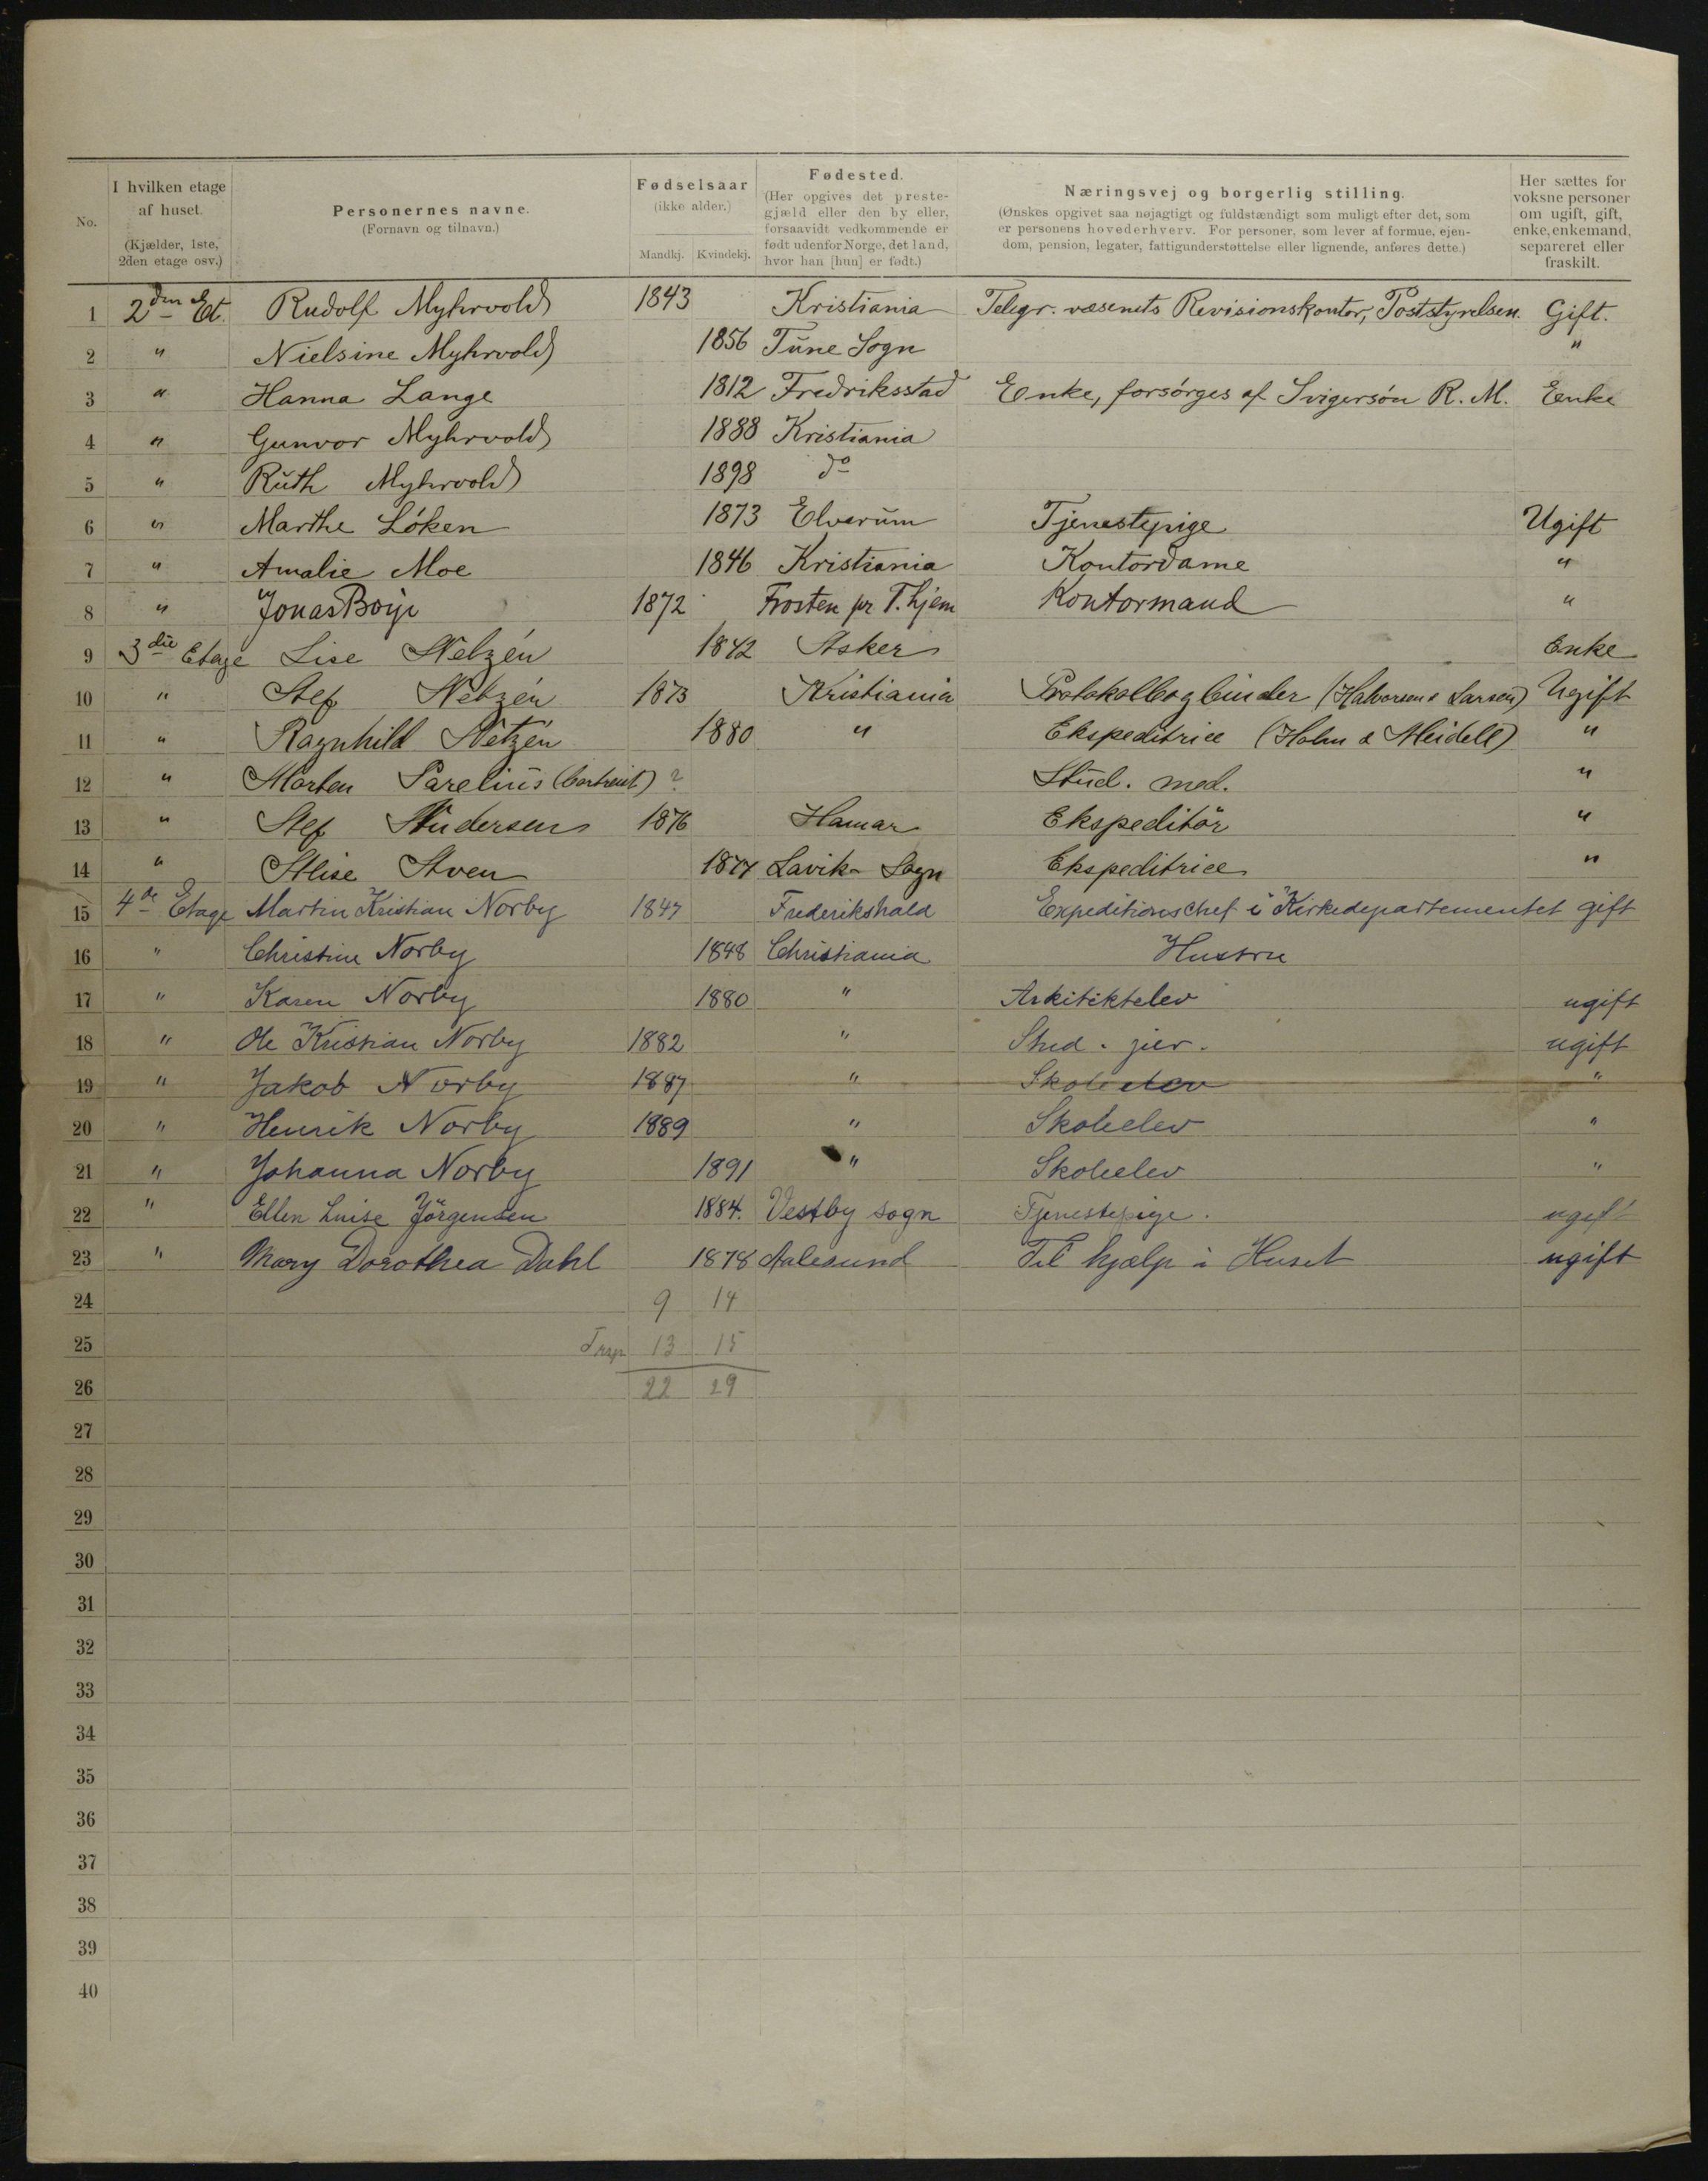 No.
I hvilken etage af huset. (Kjælder, 1ste, 2den etage osv.)
Personernes navne. (Fornavn og tilnavn.)
Fødselsaar (ikke alder.) Mandkj. Kvindekj.
Fødested. (Her opgives det prestegjæld eller den by eller, forsaavidt vedkommende er født udenfor Norge, det land, hvor han [hun] er født.)
Næringsvej og borgerlig stilling. (Ønskes opgivet saa nøjagtigt og fuldstændigt som muligt efter det, som er personens hovederhverv. For personer, som lever af formue, ejendom, pension, legater, fattigunderstøttelse eller lignende, anføres dette.)
Her sættes for voksne personer om ugift, gift, enke, enkemand, separeret eller fraskilt.
1 2den Et. Rudolf Myhrvold 1843 Kristiania Telegr. væsenets Revisionskontor, Poststyrelsen. Gift.
2 " Nielsine Myhrvold 1856 Tune Sogn "
3 " Hanna Lange 1812 Fredriksstad Enke, forsørges af Svigersøn R. M. Enke
4 " Gunvor Myhrvold 1888 Kristiania
5 " Ruth Myhrvold 1898 do
6 " Marthe Løken 1873 Elverum Tjenestepige Ugift
7 " Amalie Moe 1846 Kristiania Kontordame "
8 " Jonas 1872 Frosten pr T.hjem Kontormand "
9 3die Etage Lise Netzén 1842 Asker Enke
10 " Netzén 1873 Kristiania Protokolbogbinder (Halvorsen & Larsen) Ugift
11 " Ragnhild Netzén 1880 " Ekspeditrice (Holm & Meidell) "
12 " Morten Parelius (bortreist) ? Stud. med. "
13 " 1876 Hamar Ekspeditør "
14 " 1877 Lavik Sogn Ekspeditrice "
15 4de Etage Martin Kristian Norby 1847 Frederikshald Expeditionschef i Kirkedepartementet gift
16 " Christine Norby 1848 Christiania Hustru
17 " Karen Norby 1880 " Arkitektelev ugift
18 " Ole Kristian Norby 1882 " Stud. jur. ugift
19 " Jakob Norby 1887 " Skoleelev "
20 " Henrik Norby 1889 " Skoleelev "
21 " Johanna Norby 1891 " Skoleelev "
22 " Ellen Luise Jörgensen 1884. Vestby sogn Tjenestepige. ugift
23 " Mary Dorothea Dahl 1878 Aalesund Til hjælp i Huset ugift
24 9 14
25 Trsp 13 15
26 22 29
27
28
29
30
31
32
33
34
35
36
37
38
39
40